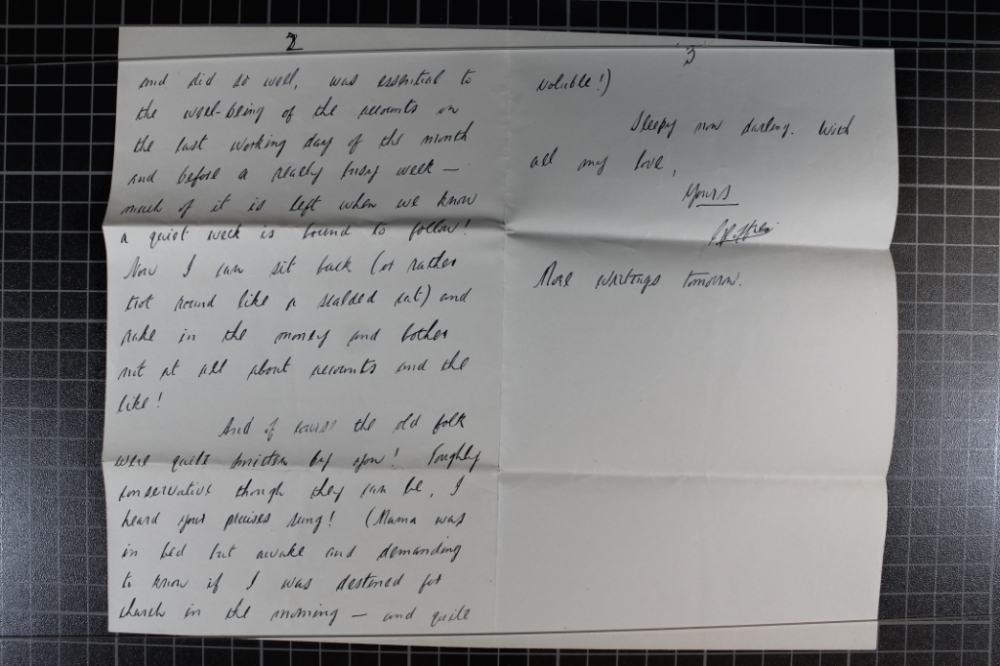 2
and did so well, was essential to
the well-being of the accounts on
the last working day of the month
and before a really busy week —
much of it is left when we know
a quiet week is bound to follow!
Now I can sit back (or rather
trot round like a scalded cat) and
rake in the money and bother
not at all about accounts and the
like!
And of course the old folk
were quite smitten by you!
conservative though they can be, I
heard your praises sung! (Mama was
in bed but awake and demanding
to know if I was destined for
church in the morning — and quite
3
voluble!)
Sleepy now darling. With
all my love,
Yours
More writings tomorrow.